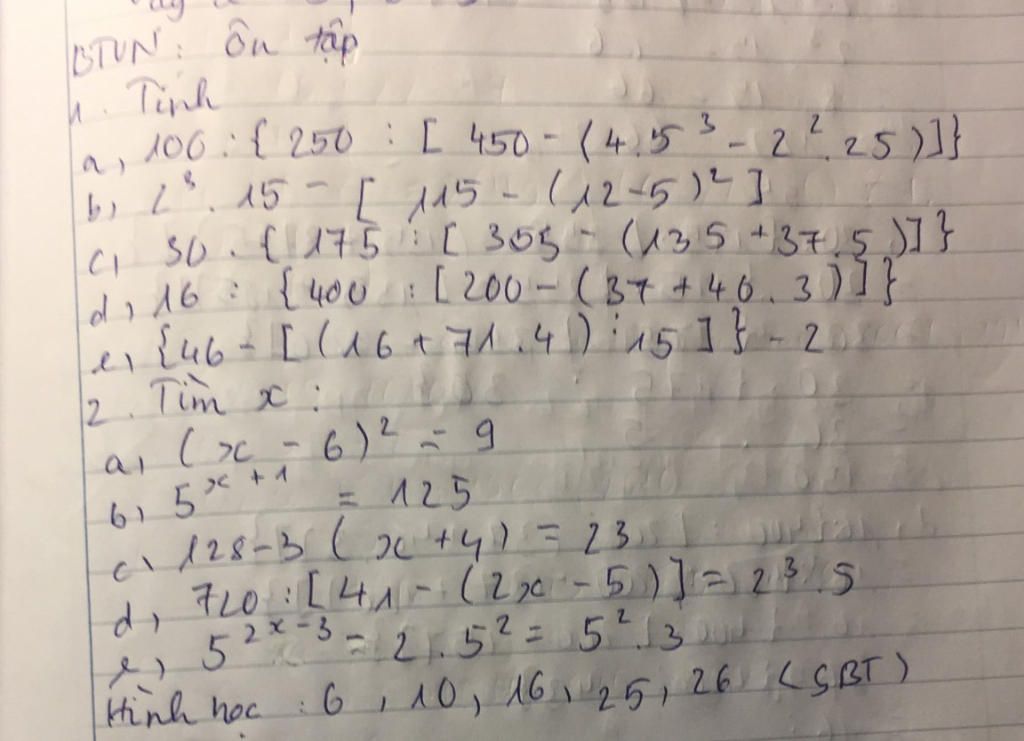 BTVN: Ôn tập
1. Tính
a, 100 : { 250 : [ 450 - (4.5³ - 2².25)]}
b, 2³ . 15 - [ 115 - (12-5)² ]
c, 30 . { 175 : [ 355 - (135 + 37.5)]}
d, 16 : {400 : [200 - (37 + 46.3)]}
e, {46 - [(16 + 71.4) : 15]} - 2
2. Tìm x :
a, (x - 6)² = 9
b, 5ˣ⁺¹ = 125
c, 128 - 3 (x+4) = 23
d, 720 : [41 - (2x - 5)] = 2³.5
e, 5²ˣ⁻³ = 2.5² = 5².3
Hình học : 6, 10, 16, 25, 26 (SBT)